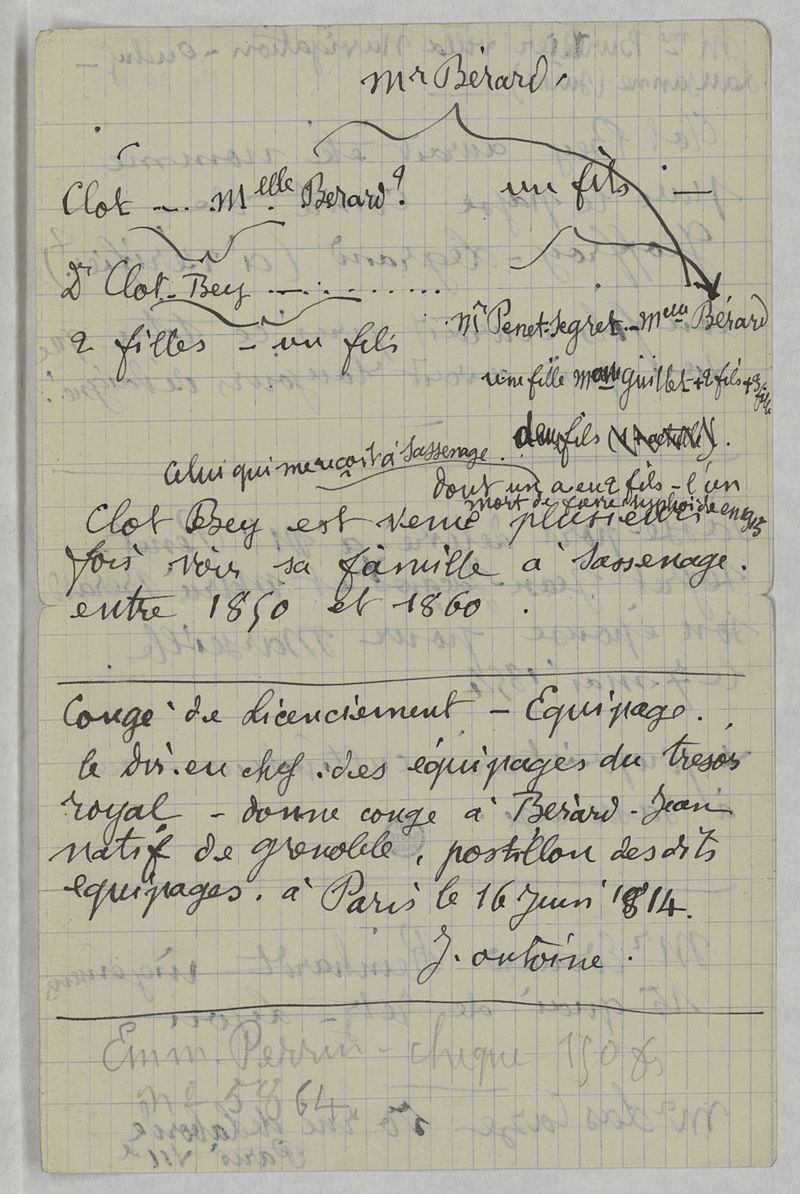 Mr Bérard.
Clot ... Melle Bérard? un fils —
Dr Clot-Bey ...........
Mr Penet-Segret – Melle Bérard
2 filles – un fils
une fille Mme Guillet + 2 fils +
deux fils
Celui qui me reçoit à Sassenage.
dont un a eu 2 fils – l'un
mort de fièvre typhoïde en 1915
Clot Bey est venu plusieurs
fois voir sa famille à Sassenage.
entre 1850 et 1860.
Congé de Licenciement – Equipage.
le Dir. en chef. des équipages du tresor
royal – donne conge à Bérard. Jean
natif de Grenoble, postillon desdits
equipages. à Paris le 16 Juin 1814.
J. Antoine.
Emm. Perrin – chèque 150 frs
64